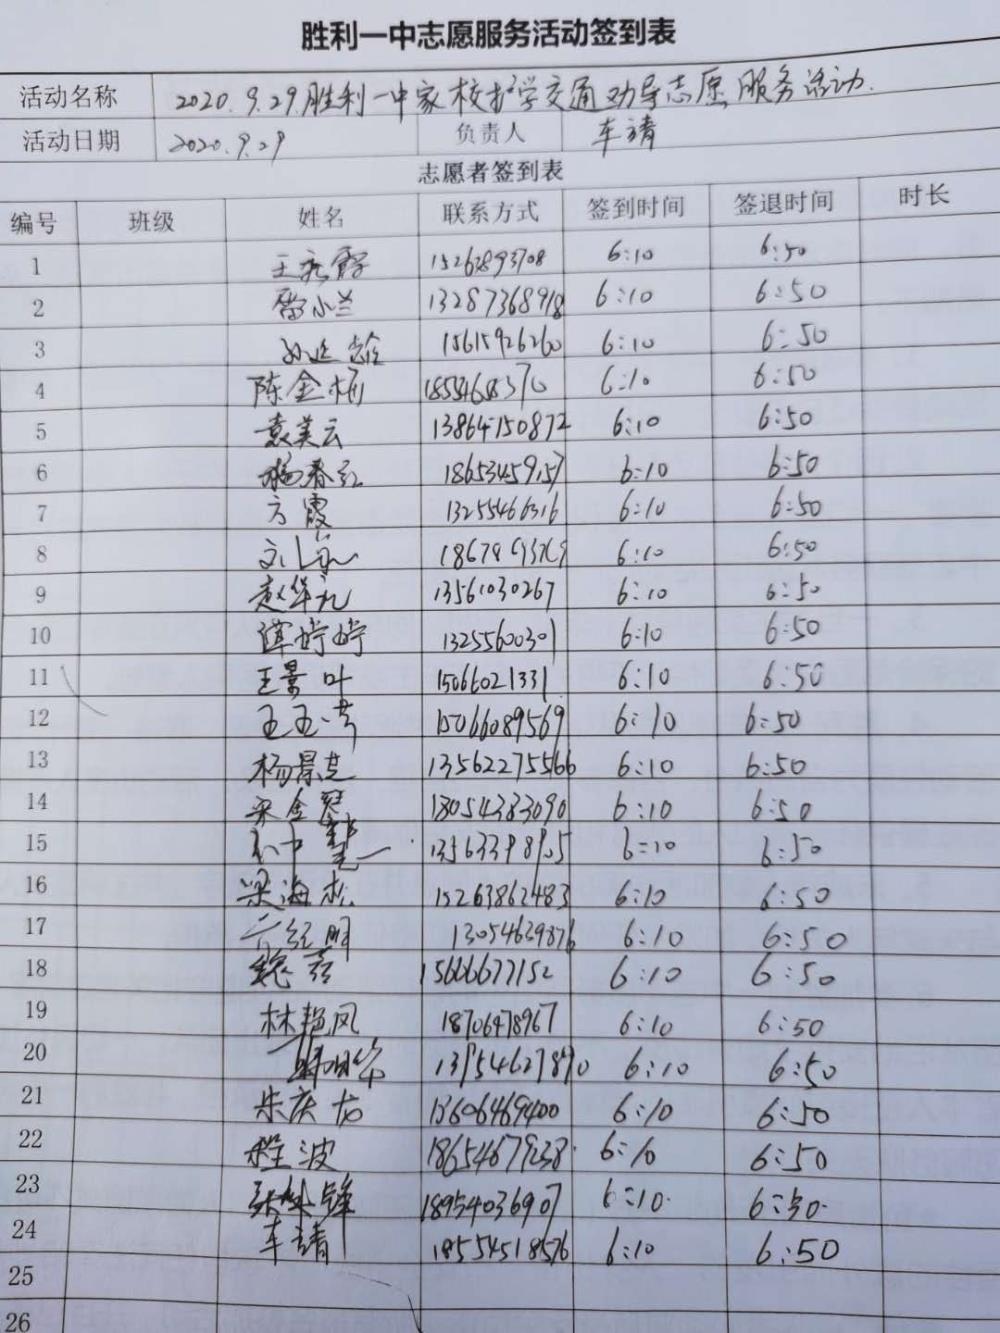 胜利一中志愿服务活动签到表
活动名称 2020.9.29.胜利一中家校护学交通劝导志愿服务活动.
活动日期 2020.9.29 负责人 车靖
志愿者签到表
编号 班级 姓名 联系方式 签到时间 签退时间 时长
1 15263893708 6:10 6:50
2 雷小兰 13287368918 6:10 6:50
3 15615926260 6:10 6:50
4 陈金梅 6:10 6:50
5 袁美云 13864150872 6:10 6:50
6 杨春红 18653459157 6:10 6:50
7 方霞 13255466316 6:10 6:50
8 6:10 6:50
9 赵华礼 13561030267 6:10 6:50
10 婷婷 13255600301 6:10 6:50
11 王景叶 15066021331 6:10 6:50
12 15066089569 6:10 6:50
13 杨景芝 13562275566 6:10 6:50
14 宋金琴 18054383090 6:10 6:50
15 6:10 6:50
16 梁海松 15263862483 6:10 6:50
17 13054639876 6:10 6:50
18 魏 15666677152 6:10 6:50
19 林艳凤 18706478967 6:10 6:50
20 韩明华 13954627890 6:10 6:50
21 朱庆龙 13606469400 6:10 6:50
22 程波 18654679238 6:10 6:50
23 18954036907 6:10 6:50
24 车靖 18554518576 6:10 6:50
25
26